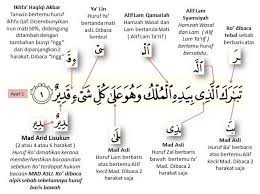 Ikhfa' Haqiqi Akbar
Tanwin bertemu huruf
dengan
tambahan bunyi "ngg"
dan dipanjangkan 2
harakat. Dibaca
Ya' Lin
Huruf Ya'
bertanda mati
asli. Dibaca
lembut
Alif Lam Qamariah
Hamzah Wasal
dan Lam bertanda
Mati ( Alif Lam
Ta'rif )
Alif Lam
Syamsiyah
Hamzah Wasal
dan Lam ( Alif
Lam Ta'rif )
bertemu huruf
Ro' dibaca
tebal sebab
berbaris atas
Ayat 1
تَبَٰرَكَ ٱلَّذِي بِيَدِهِ ٱلْمُلْكُ وَهُوَ عَلَىٰ كُلِّ شَيْءٍ قَدِيرٌ
Mad Arid Lisukun
( 2 atau 4 atau 6 harakat )
Huruf Ro' dimatikan kerana
memberhentikan bacaan dan
sebelum Ro' terdapat hukum
bacaan Mad Asli. Ro' dibaca
nipis sebab sebelumnya huruf
baris bawah
Mad Asli
Huruf Lam berbaris
atas bertemu Alif
Mad. Dibaca 2
harakat saja
Mad Asli
Huruf Lam berbaris
bawah bertemu
Ya' Mad. Dibaca 2
harakat saja
Mad Asli
Huruf Ba' berbaris
atas bertemu Alif
Mad. Dibaca 2
harakat saja